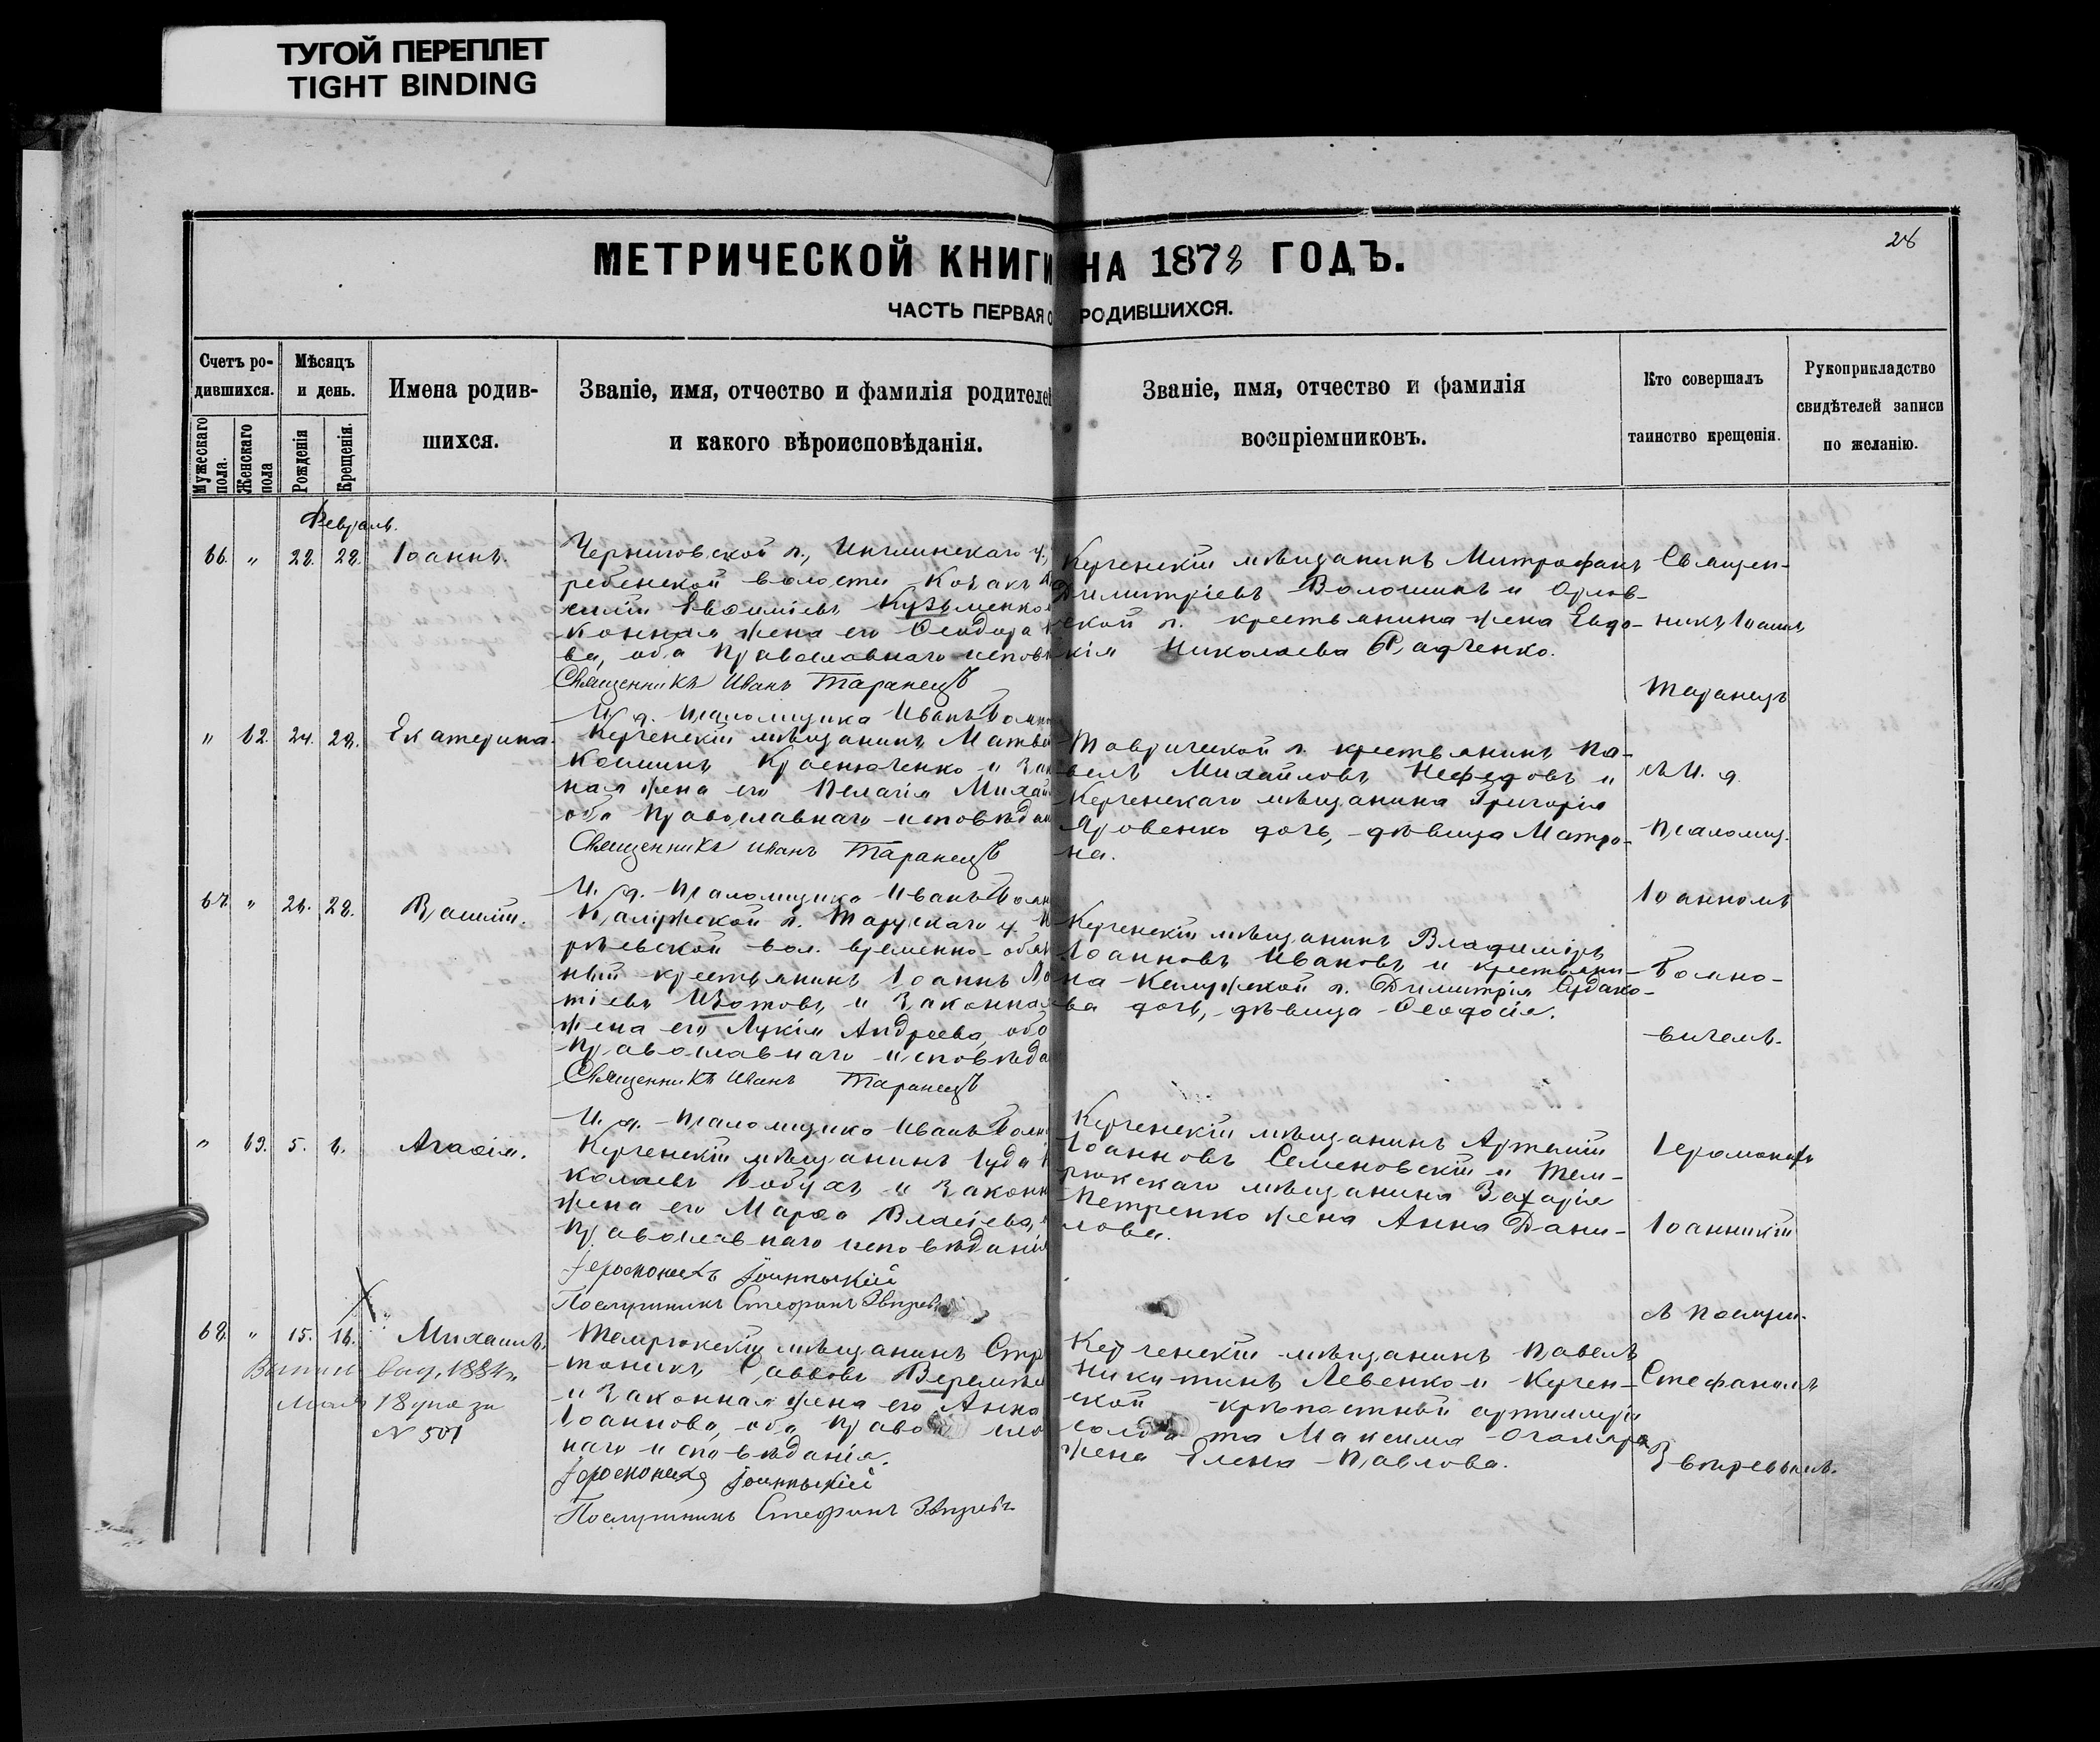 ТУГОЙ ПЕРЕПЛЕТ
TIGHT BINDING
28
МЕТРИЧЕСКОЙ КНИГИ НА 1878 ГОДЪ.
ЧАСТЬ ПЕРВАЯ О РОДИВШИХСЯ.
Счетъ ро-
дившихся.
Мужескаго пола.
Женскаго пола
Мѣсяцъ
и день.
Рожденія
Крещенія.
Имена родив-
шихся.
Званіе, имя, отчество и фамилія родителей
и какого вѣроисповѣданія.
Званіе, имя, отчество и фамилія
воспріемниковъ.
Кто совершалъ
таинство крещенія.
Рукоприкладство
свидѣтелей записи
по желанію.
Февраль.
66. " 22. 28. Іоаннъ.
Черниговской г.,
ребенской волости Козакъ
Евѳиміевъ Кузьменко
конная жена его Ѳеодора
ва, оба Православнаго исповѣ
Священникъ Иванъ Таранецъ
И. д. Псаломщика Иванъ
Керченскій мѣщанинъ Митрофанъ
Димитріевъ Волошинъ и Орлов-
ской г. крестьянина жена Евдо-
кія Николаева Радченко.
Священ-
никъ Іоаннъ
Таранецъ
" 62. 24. 28. Екатерина.
Керченскій мѣщанинъ Матвѣ
Косминъ Краснюченко и Зак
ная жена его Пелагія Михай
оба Православнаго исповѣдан
Священникъ Иванъ Таранецъ
И. д. Псаломщика Иванъ
Таврической г. крестьянинъ Па-
велъ Михайловъ Нефедовъ и
Керченскаго мѣщанина Григорія
Яровенко дочь, дѣвица Матро-
на.
съ И. д.
Псаломщ.
Іоанномъ
67. " 26. 28. Василій.
Калужской г. Тарускаго у.
рѣевской вол. временно-обяз
ный крестьянинъ Іоаннъ
тіевъ Изотовъ и Законная
жена его Лукія Андреева, оба
Православнаго исповѣда
Священникъ Иванъ Таранецъ
И. д. Псаломщика Иванъ
Керченскій мѣщанинъ Владиміръ
Іоанновъ Ивановъ и крестьяни-
на Калужской г. Димитрія
ва дочь, дѣвица Ѳеодосія.
Бояно-
вичемъ.
" 63. 5. 6. Агаѳія.
Керченскій мѣщанинъ Іуда
колаевъ Кобудъ и Законн
жена его Марѳа Власіева,
Православнаго исповѣданія
Іеромонахъ Іоанникій
Послушникъ Стефанъ Звѣревъ
Керченскій мѣщанинъ Артемій
Іоанновъ Семеновскій и Тем-
рюкскаго мѣщанина Захарія
Петренко жена Анна Дани-
лова.
Іеромонахъ
Іоанникій
съ Послуш.
68. " 15. 16. Михаилъ.
1884 г.
18 дня за
№ 501
Темрюкскій мѣщанинъ Стр
тоникъ Саввовъ
и Законная жена его Анна
Іоаннова, оба Право сла
наго исповѣданія.
Іеромонахъ Іоанникій
Послушникъ Стефанъ Звѣревъ
Керченскій мѣщанинъ Павелъ
Никитинъ Левенко и Керчен-
ской крѣпостной артиллеріи
солда та Максима
жена Елена Павлова.
Стефаномъ
Звѣревымъ.